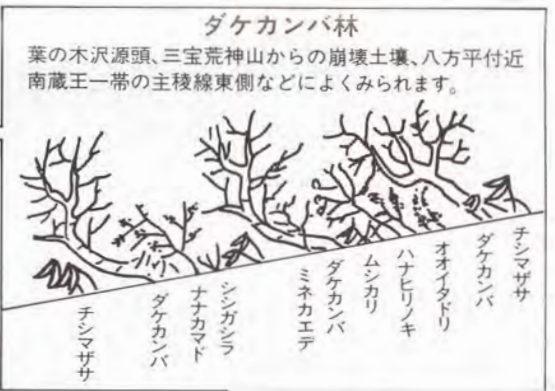 ダケカンバ林
葉の木沢源頭、三宝荒神山からの崩壊土壌、八方平付近
南蔵王一帯の主稜線東側などによくみられます。
チシマザサ
ダケカンバ
ナナカマド
シシガシラ
ミネカエデ
ダケカンバ
ムシカリ
ハナヒリノキ
オオイタドリ
ダケカンバ
チシマザサ